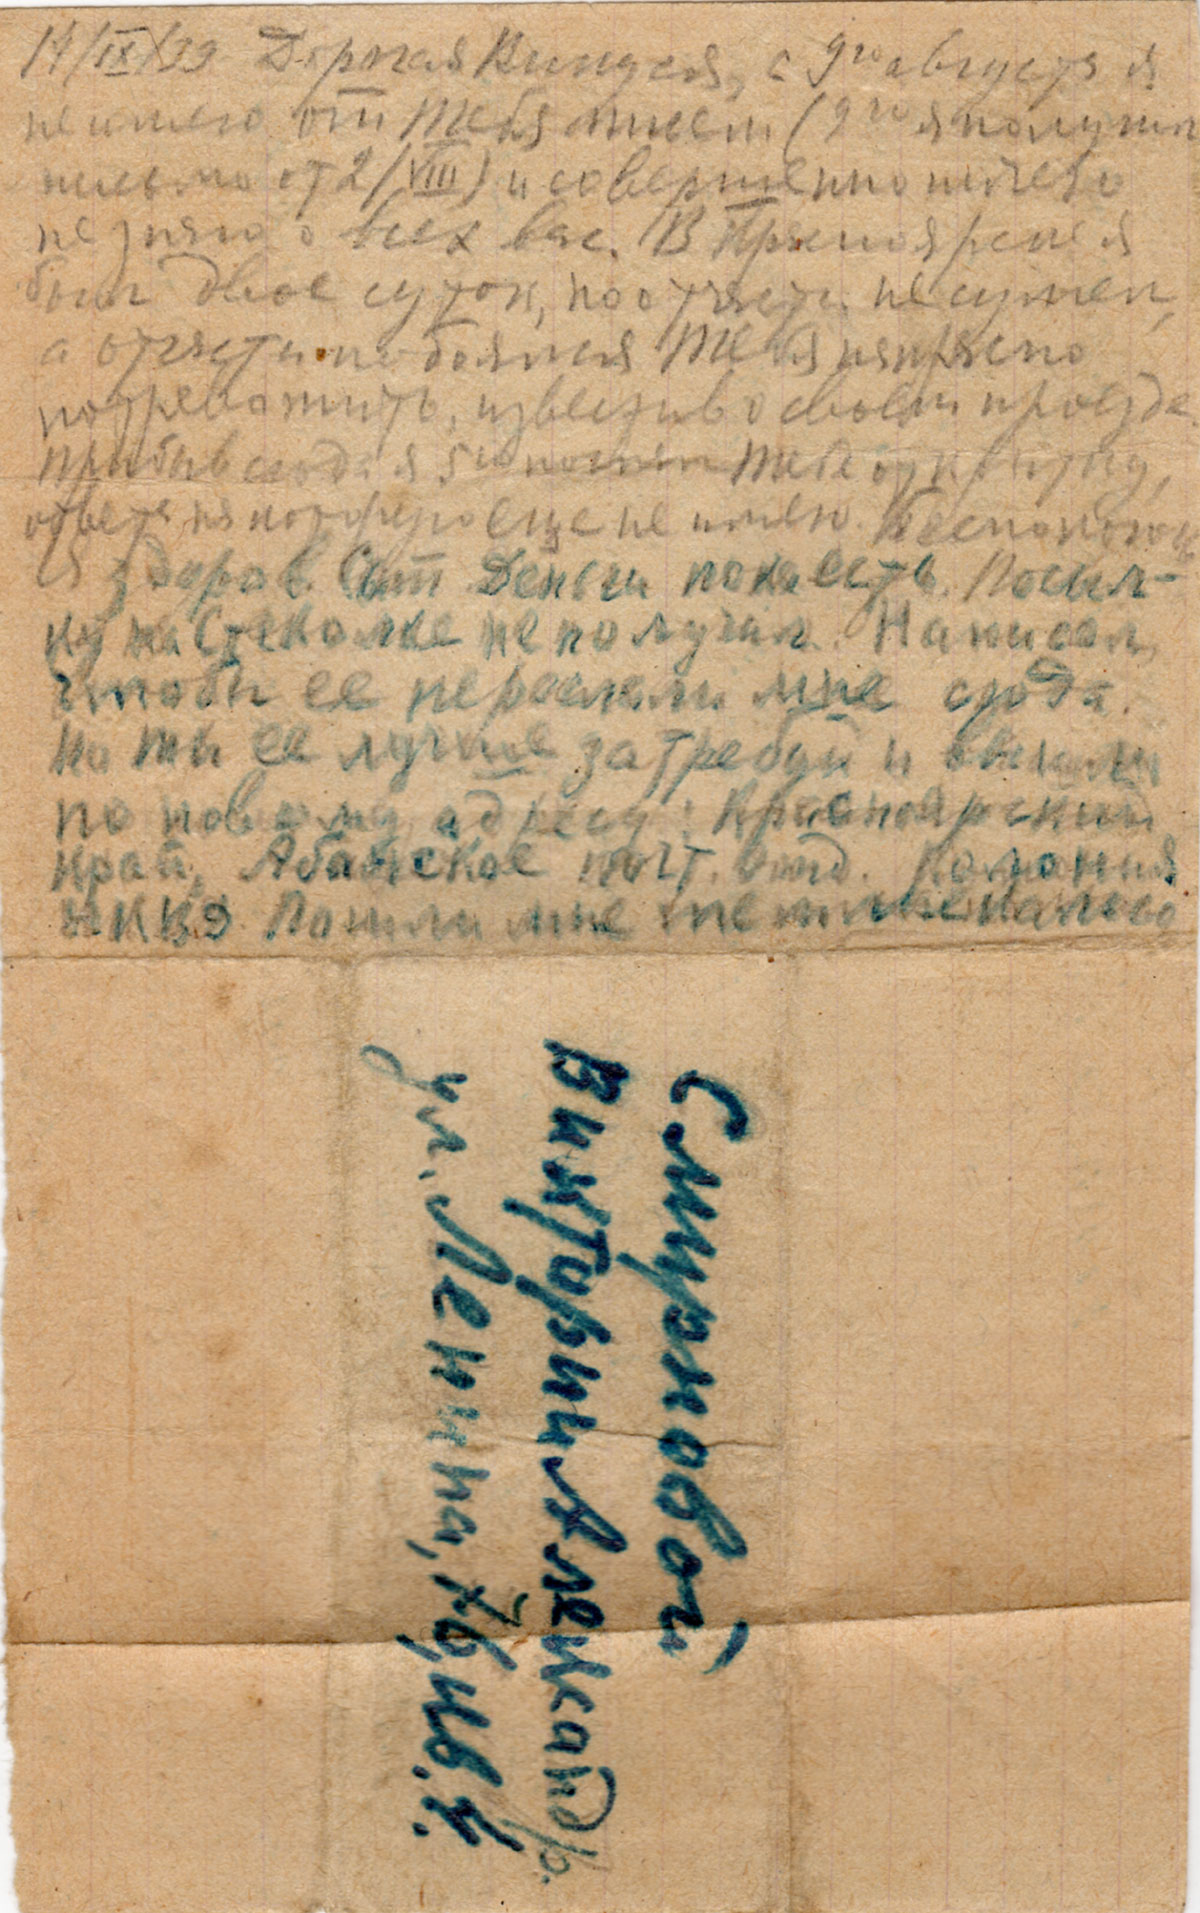 14/IX/39 Дорогая Кингуся, с 9го августа я
не имею от тебя писем (9го я получил
письмо от 2/VIII) и совершенно ничего
не знаю о всех вас. В Красноярске я
был двое суток, но отчасти не сумел,
а отчасти побоялся тебя напрасно
потревожить, известив о своем проезде.
Прибыв сюда я 5го послал тебе открытку,
ответа на которую еще не имею. Беспокоюсь
Я здоров. Сыт Деньги пока есть. Посыл-
ку на Стеколке не получил. Написал,
чтобы ее переслали мне сюда.
Но ты ее лучше затребуй и вышли
по новому адресу: Красноярский
край, Абанское почт. отд. Колония
НКВД Пошли мне
Смирновой
Виктории Александр.
ул. Ленина, 76, кв. 4.